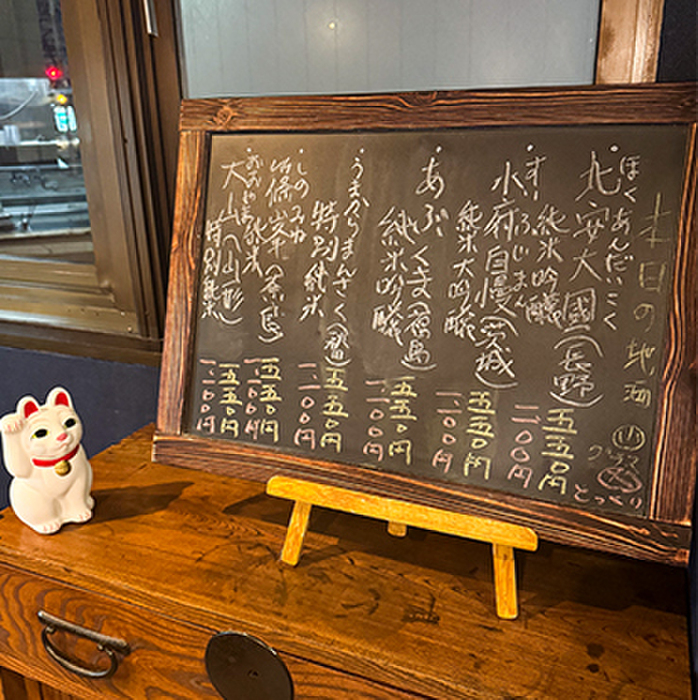 本日の地酒
とっくり
ほくあんだいこく
北安大國（長野）
純米吟醸
五五〇円
一一〇〇円
すいふじまん
水府自慢（茨城）
純米大吟醸
五五〇円
一一〇〇円
あぶくま（福島）
純米吟醸
五五〇円
一一〇〇円
うまからまんさく（秋田）
特別純米
五五〇円
一一〇〇円
しのみね
篠峯（奈良）
純米
五五〇円
一一〇〇円
おおやま
大山（山形）
特別純米
五五〇円
一一〇〇円